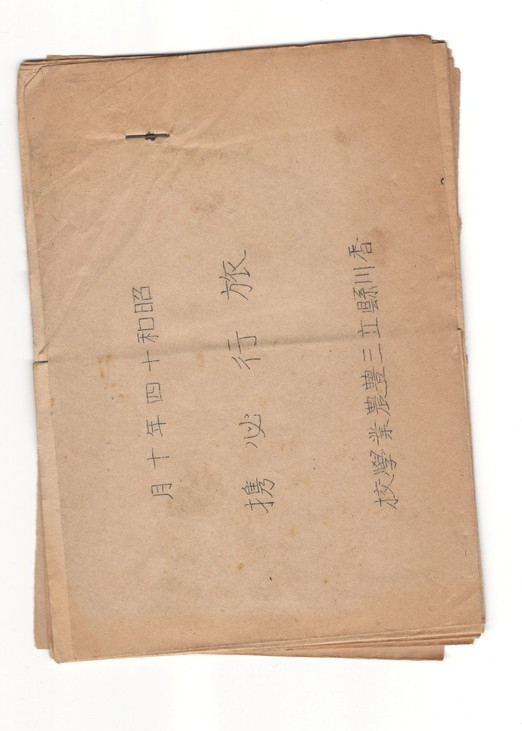 香川縣立三豊農業學校
旅行必携
昭和十四年十月